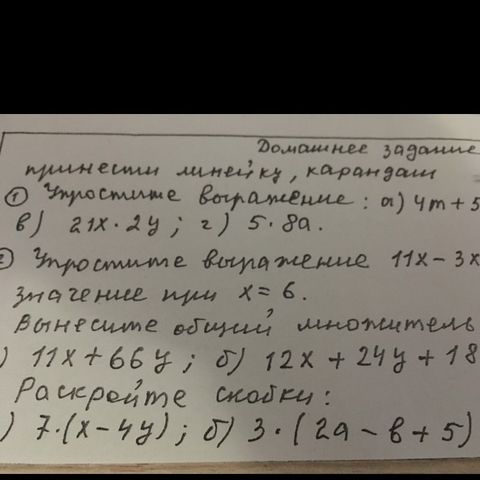 Домашнее задание
принести линейку, карандаш
① Упростите выражение: а) 4m + 5
в) 21x · 2y ; г) 5 · 8a.
② Упростите выражение 11x – 3x
значение при x = 6.
Вынесите общий множитель
) 11x + 66y ; б) 12x + 24y + 18
Раскройте скобки:
) 7 · (x – 4y) ; б) 3 · (2a – b + 5)